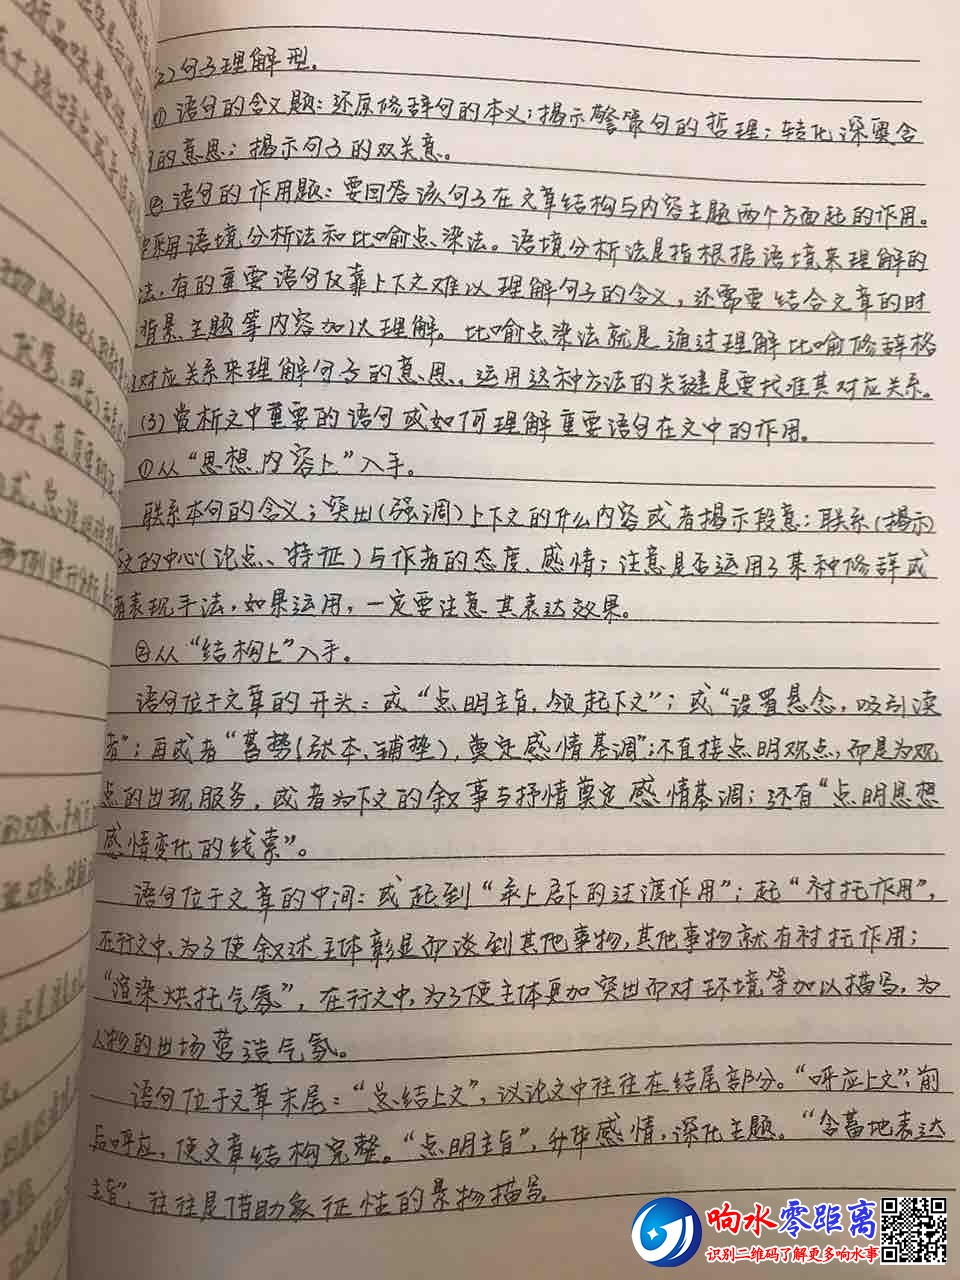 (2)句子理解型。
①语句的含义题：还原修辞句的本义；揭示警策句的哲理；转化深奥含
的意思；揭示句子的双关意。
②语句的作用题：要回答该句子在文章结构与内容主题两个方面起的作用。
采用语境分析法和比喻点染法。语境分析法是指根据语境来理解的
法，有的重要语句仅靠上下文难以理解句子的含义，还需要结合文章的时
背景、主题等内容加以理解。比喻点染法就是通过理解比喻修辞格
对应关系来理解句子的意思，运用这种方法的关键是要找准其对应关系。
(3)赏析文中重要的语句或如何理解重要语句在文中的作用。
①从“思想内容上”入手。
联系本句的含义；突出(强调)上下文的什么内容或者揭示段意；联系(揭示)
文的中心(论点、特征)与作者的态度、感情；注意是否运用了某种修辞或
者表现手法，如果运用，一定要注意其表达效果。
②从“结构上”入手。
语句位于文章的开头：或“点明主旨，领起下文”；或“设置悬念，吸引读
者”；再或者“蓄势(张本、铺垫)，奠定感情基调”；不直接点明观点，而是为观
点的出现服务，或者为下文的叙事与抒情奠定感情基调；还有“点明思想
感情变化的线索”。
语句位于文章的中间：或起到“承上启下的过渡作用”；起“衬托作用”，
在行文中，为了使叙述主体彰显而谈到其他事物，其他事物就有衬托作用；
“渲染烘托气氛”，在行文中，为了使主体更加突出而对环境等加以描写，为
人物的出场营造气氛。
语句位于文章末尾：“总结上文”，议论文中往往在结尾部分。“呼应上文”；前
后呼应，使文章结构完整。“点明主旨”，升华感情，深化主题。“含蓄地表达
主旨”，往往是借助象征性的景物描写
响水零距离
识别二维码了解更多响水事